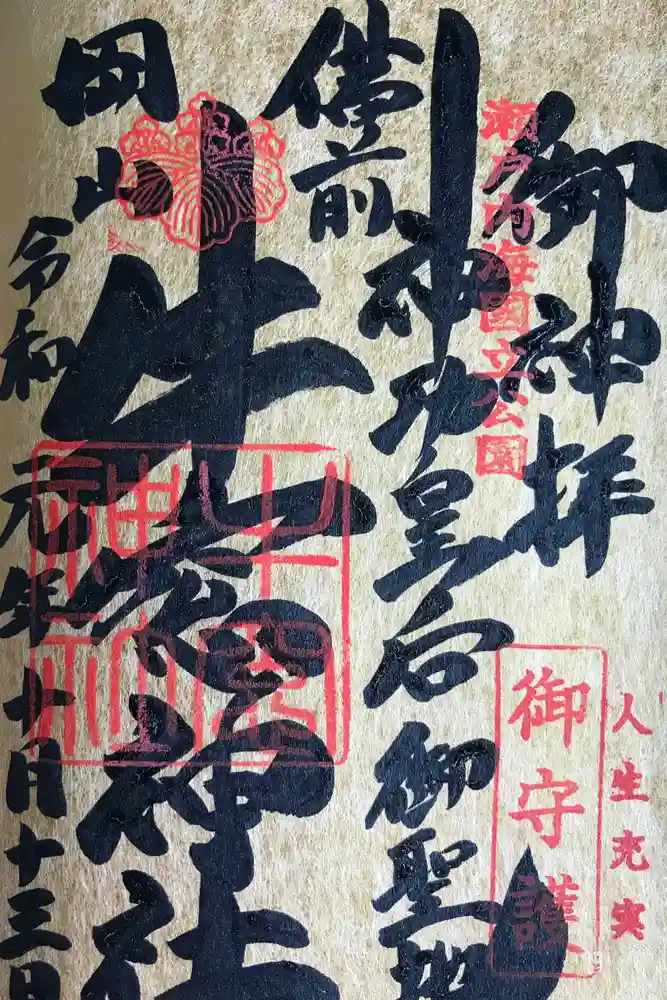 御神拝
人生充実
御守護
瀬戸内海國立公園
神功皇后御聖
備前
牛窓神社
岡山
令和元年十月十三日